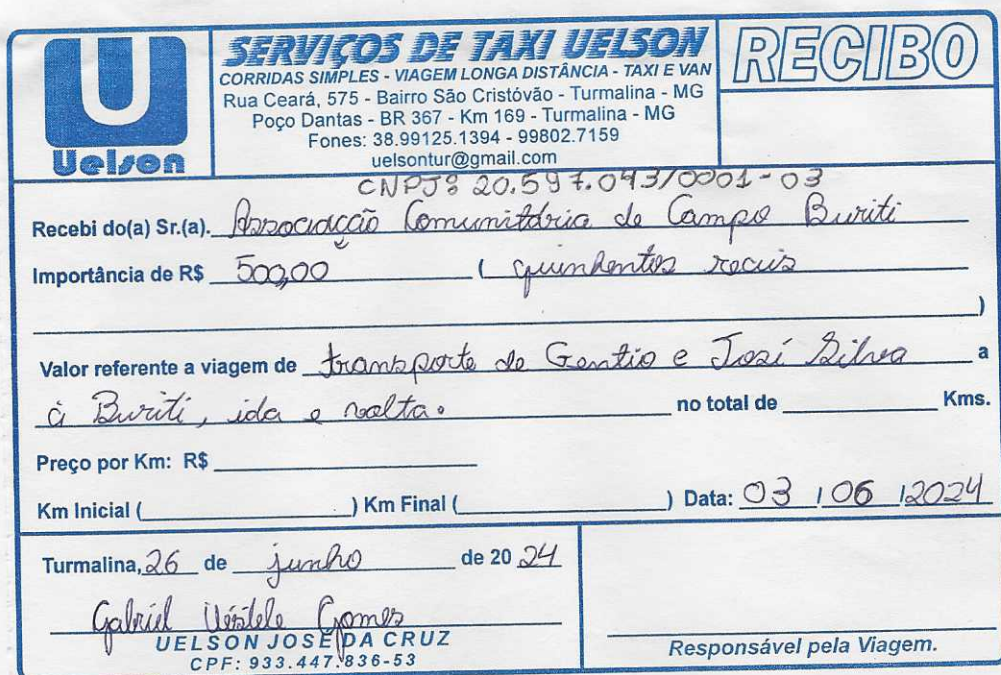 U
Uelson
SERVIÇOS DE TAXI UELSON
CORRIDAS SIMPLES - VIAGEM LONGA DISTÂNCIA - TAXI E VAN
Rua Ceará, 575 - Bairro São Cristóvão - Turmalina - MG
Poço Dantas - BR 367 - Km 169 - Turmalina - MG
Fones: 38.99125.1394 - 99802.7159
uelsontur@gmail.com
RECIBO
CNPJ: 20.597.043/0001-03
Recebi do(a) Sr.(a). Associação Comunitária de Campo Buriti
Importância de R$ 500,00 ( quinhentos reais
)
Valor referente a viagem de transporte de Gentio e José Silva a
à Buriti, ida e volta. no total de Kms.
Preço por Km: R$
Km Inicial ( ) Km Final ( ) Data: 03 / 06 / 2024
Turmalina, 26 de junho de 20 24
Gabriel Gomes
UELSON JOSÉ DA CRUZ
CPF: 933.447.836-53
Responsável pela Viagem.